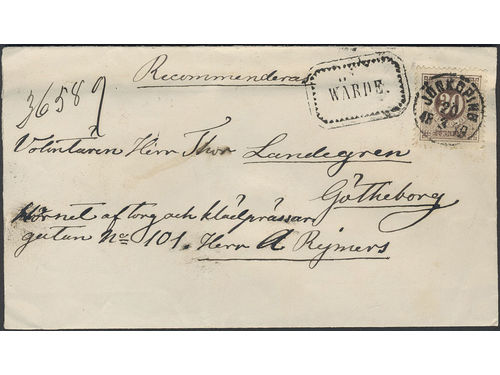 Recommenderas
WÄRDE.
JÖNKÖPING
30
36589
Volontären Herr Thor Landegren
Götheborg
Hörnet af torg och klädprässar
gatan No 101. Herr A Rijmers